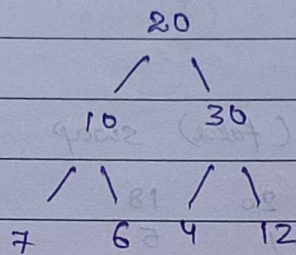 20
10 30
7 6 4 12